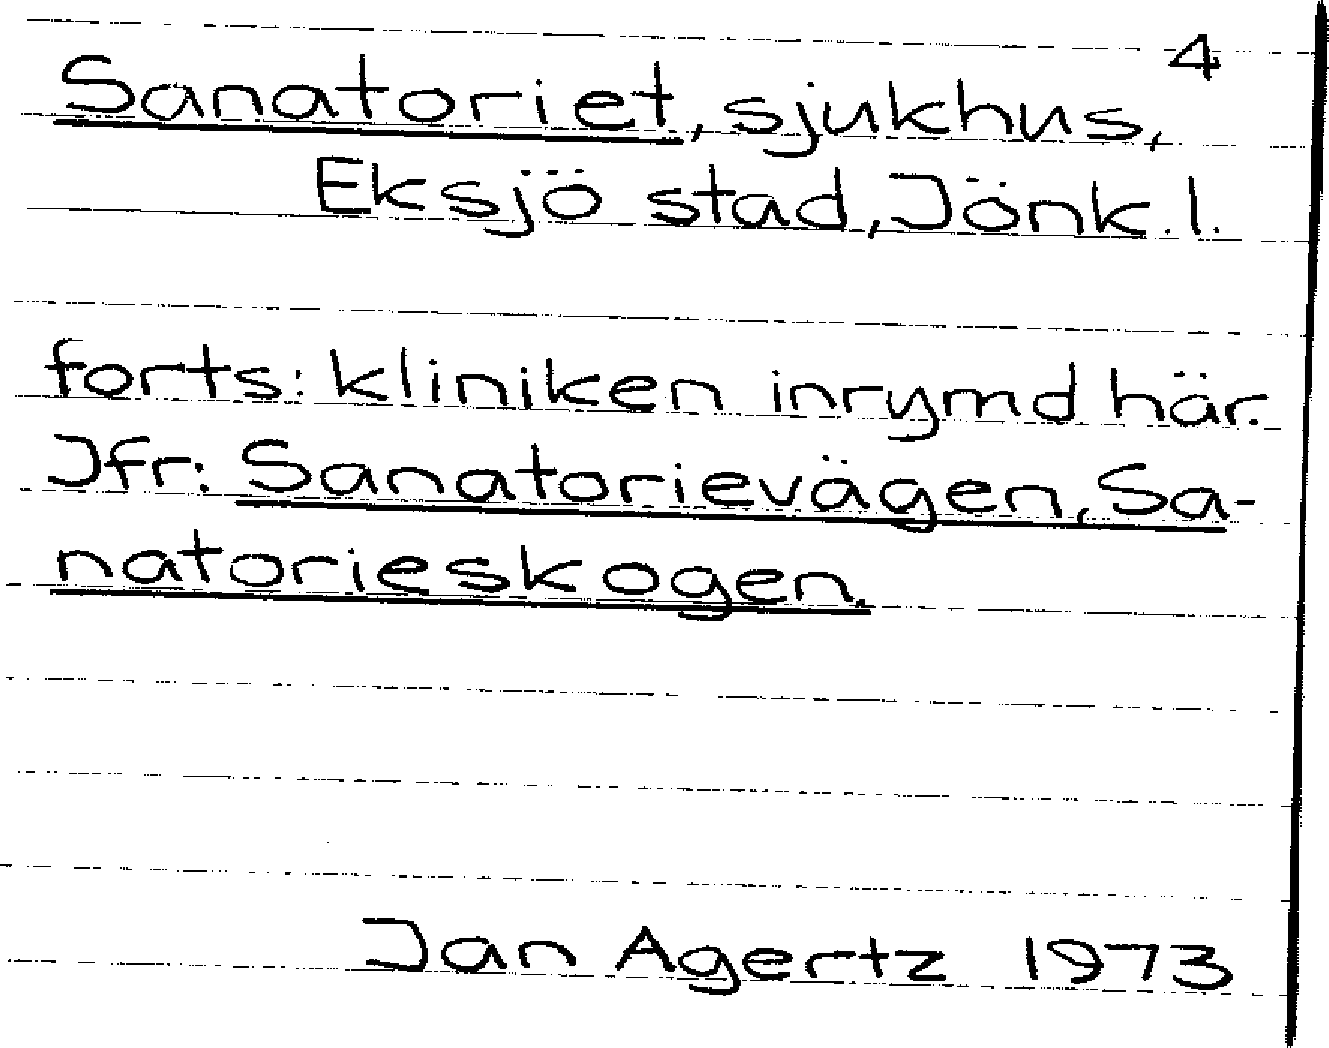 4
Sanatoriet, sjukhus,
Eksjö stad, Jönk. l.
forts: kliniken inrymd här.
Jfr: Sanatorievägen, Sa-
natorieskogen.
Jan Agertz 1973